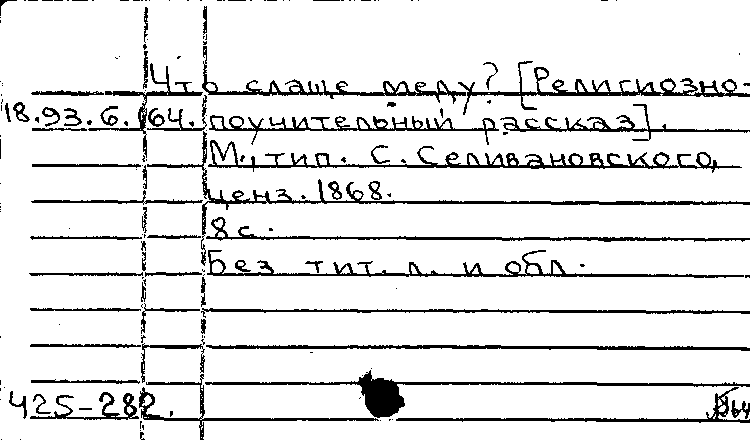 Что слаще меду? [Религиозно-
18.93.6.164. поучительный рассказ].
М., тип. С. Селивановского,
ценз. 1868.
8 с.
Без тит. л. и обл.
425-282.